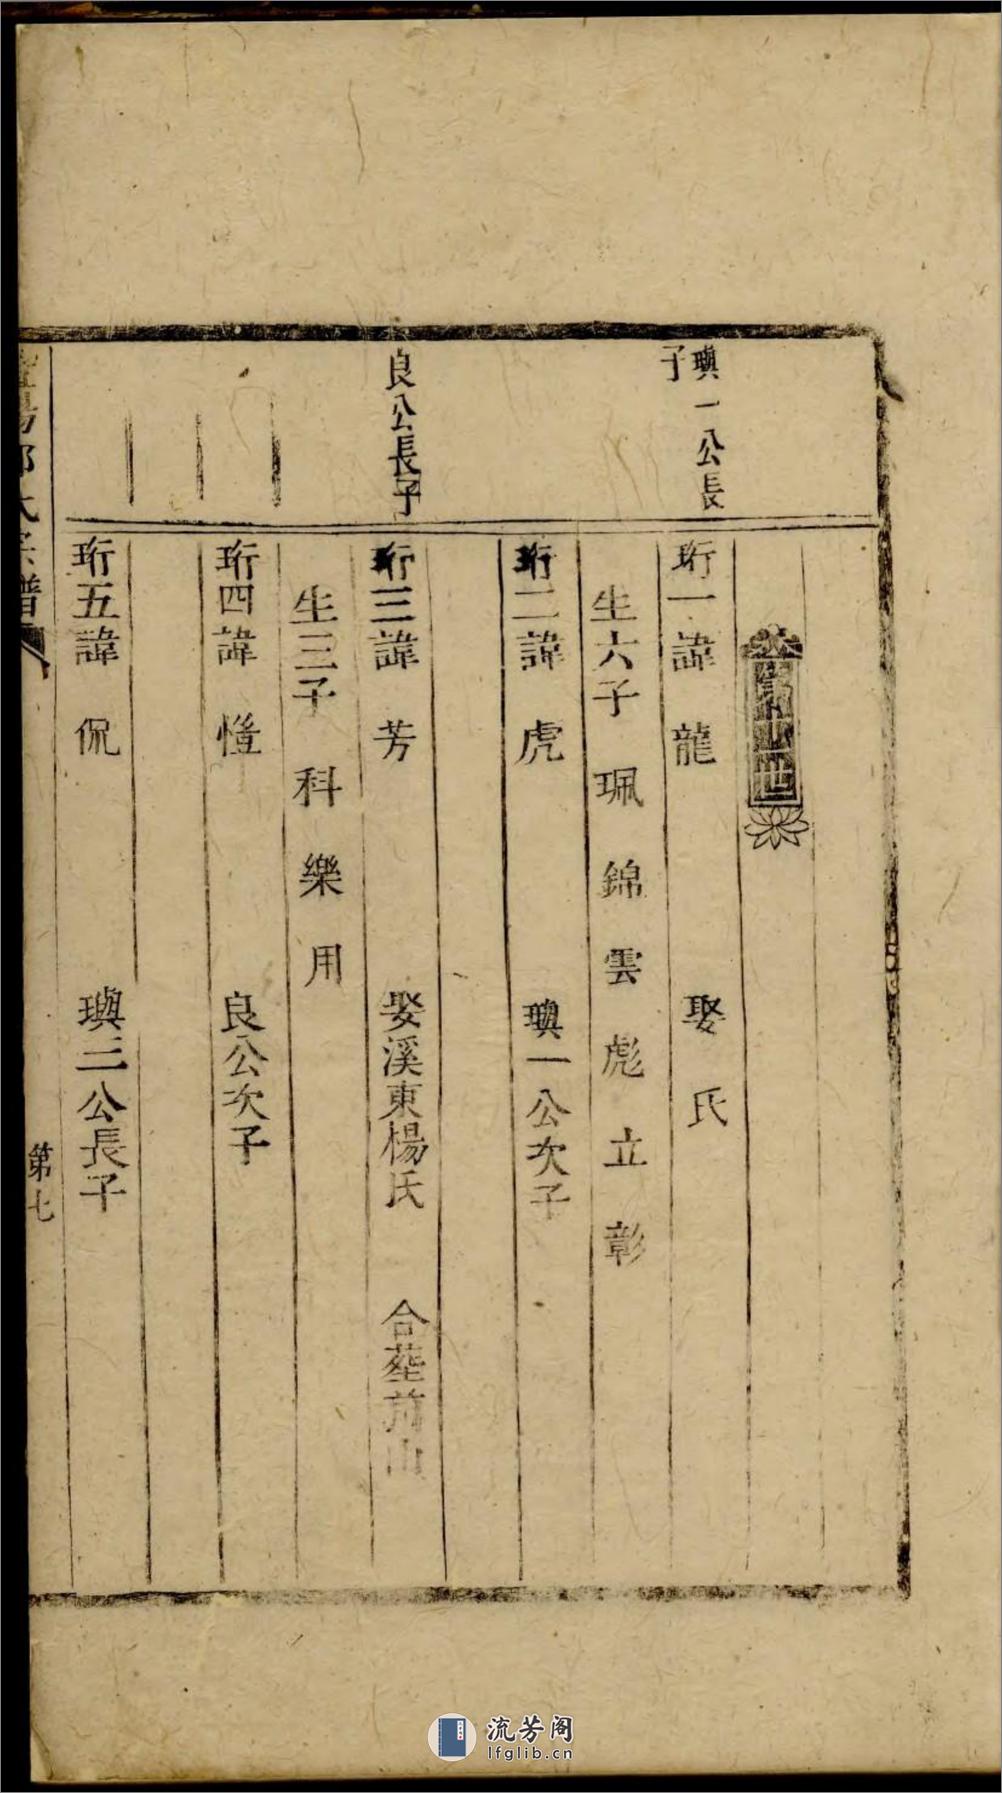 璵一公長
子
珩一諱　龍　娶　氏
生六子　珮　錦　雲　彪　立　彰
珩二諱　虎　璵一公次子
良公長子
珩三諱　芳　娶溪東楊氏　合塟前山
生三子　科　樂　用
珩四諱　愷　良公次子
珩五諱　侃　璵三公長子
氏宗譜
第七
流芳阁
lfglib.cn